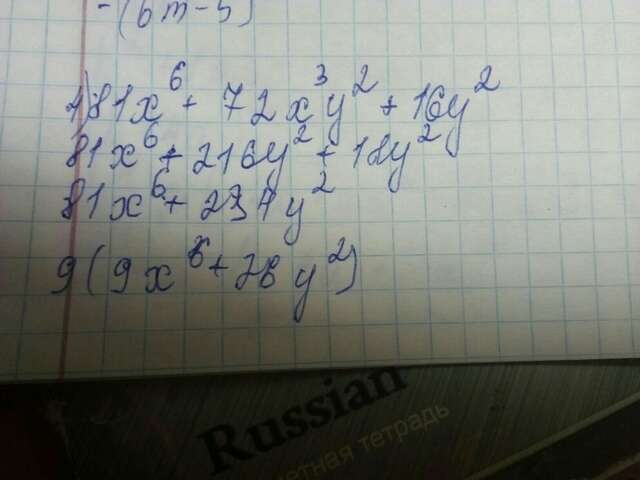 -(6m-5)
4) 81x⁶ + 72x³y² + 16y²
81x⁶ + 216y² + 18y²
81x⁶ + 234y²
9(9x⁶ + 26y²)
Russian
тетрадь